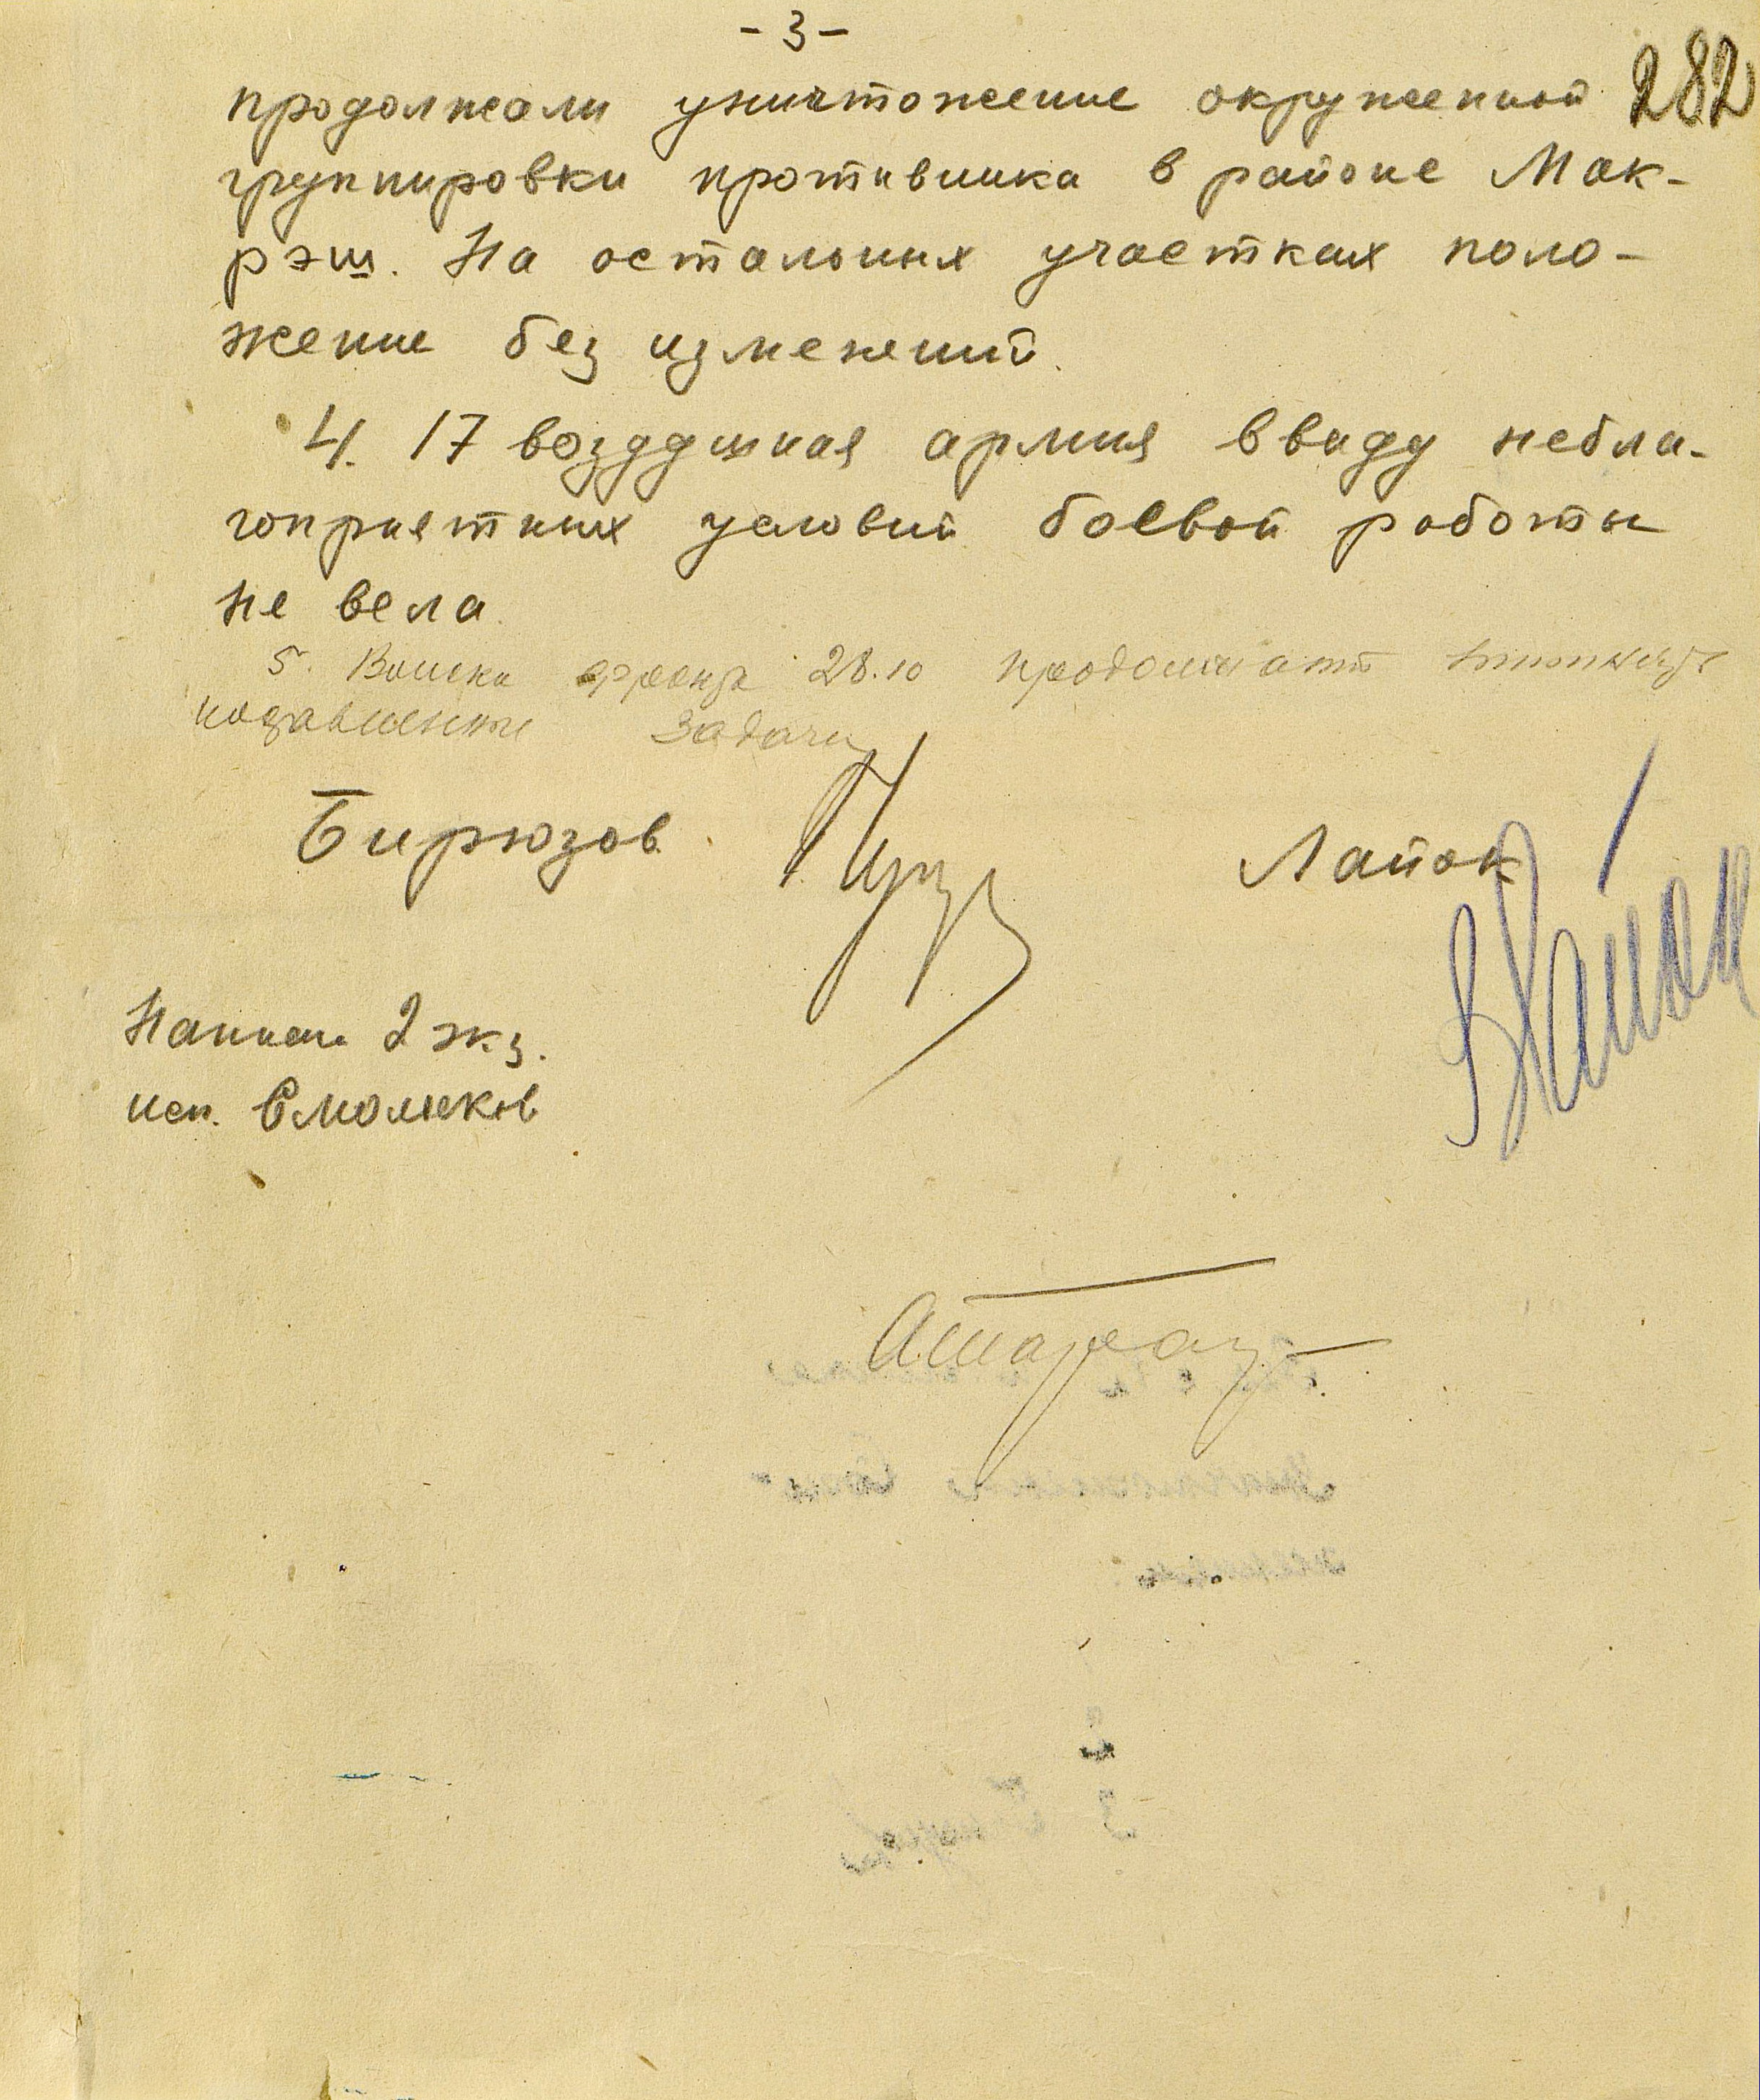 -3-
282
продолжали уничтожение окруженной
группировки противника в районе Мак-
рэш. На остальных участках поло-
жение без изменений.
4. 17 воздушная армия ввиду небла-
гоприятных условий боевой работы
не вела.
5. Войска фронта 28.10 продолжают выполнять
поставленные задачи
Бирюзов Лайок
Лайок
Напеч. 2 экз.
исп. Смоляков